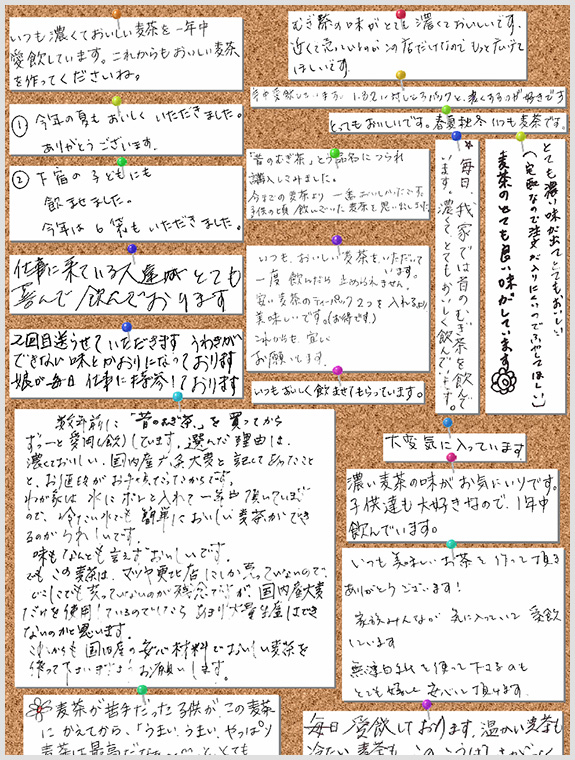 いつも濃くておいしい麦茶を一年中
愛飲しています。これからもおいしい麦茶
を作ってくださいね。
むぎ茶の味がとても濃くておいしいです。
近くで売っているのがこの店だけなので もっと広げて
ほしいです
① 今年の夏もおいしく いただきました。
ありがとうございます。
② 下宿の子どもにも
飲ませました。
今年は6袋もいただきました。
とってもおいしいです。春夏秋冬いつも麦茶です。
「昔のむぎ茶」という品名につられ
購入してみました。
今までの麦茶より一番おいしかったです。
子供の頃飲んでいた麦茶を思い出しました。
毎日、我家では昔のむぎ茶を飲んで
います。濃くてとてもおいしく飲んでいます。
とても濃い味が出てとてもおいしい
麦茶のとても良い味がしています
仕事に来ている人達が とても
喜んで 飲んでおります
いつも、おいしい麦茶をいただいて
います。
一度飲んだら止められません。
安い麦茶のティーパック2つを入れるより
美味しいです。(お得です)
これからも宜しく
お願いします。
2回目送らせていただきます うわきが
できない味とかおりになっております
娘が毎日仕事に持参しております
いつもおいしく飲ませてもらっています。
大変気に入っています
数年前に「昔のむぎ茶」を買ってから
ずーっと愛用(飲)しています。選んだ理由は、
濃くておいしい、国内産六条大麦と記してあったこと
と、お値段がお手ごろだったからです。
わが家は水にポンと入れて一年中頂いていま
ので、冷たい水でも簡単においしい麦茶ができ
るのがうれしいです。
味もなんとも言えずおいしいです。
でもこの麦茶は、マツヤ東北店にしか売っていないので、
どこにでも売っていないのが残念ですが、国内産大麦
だけを使用しているのでしたら あまり大量生産はでき
ないのかと思います。
これからも国内産の安心材料でおいしい麦茶を
作って下さいますようお願いします。
濃い麦茶の味がお気にいりです。
子供達も大好きなので、1年中
飲んでいます。
いつも美味しいお茶を作って頂き
ありがとうございます!
家族みんなが気に入っていて愛飲
しています
無漂白紙を使って下さるのも
とても嬉しく安心して頂けます。
麦茶が苦手だった子供が、この麦茶
にかえてから、「うまい、うまい、やっぱり
毎日愛飲しております。温かい麦茶も